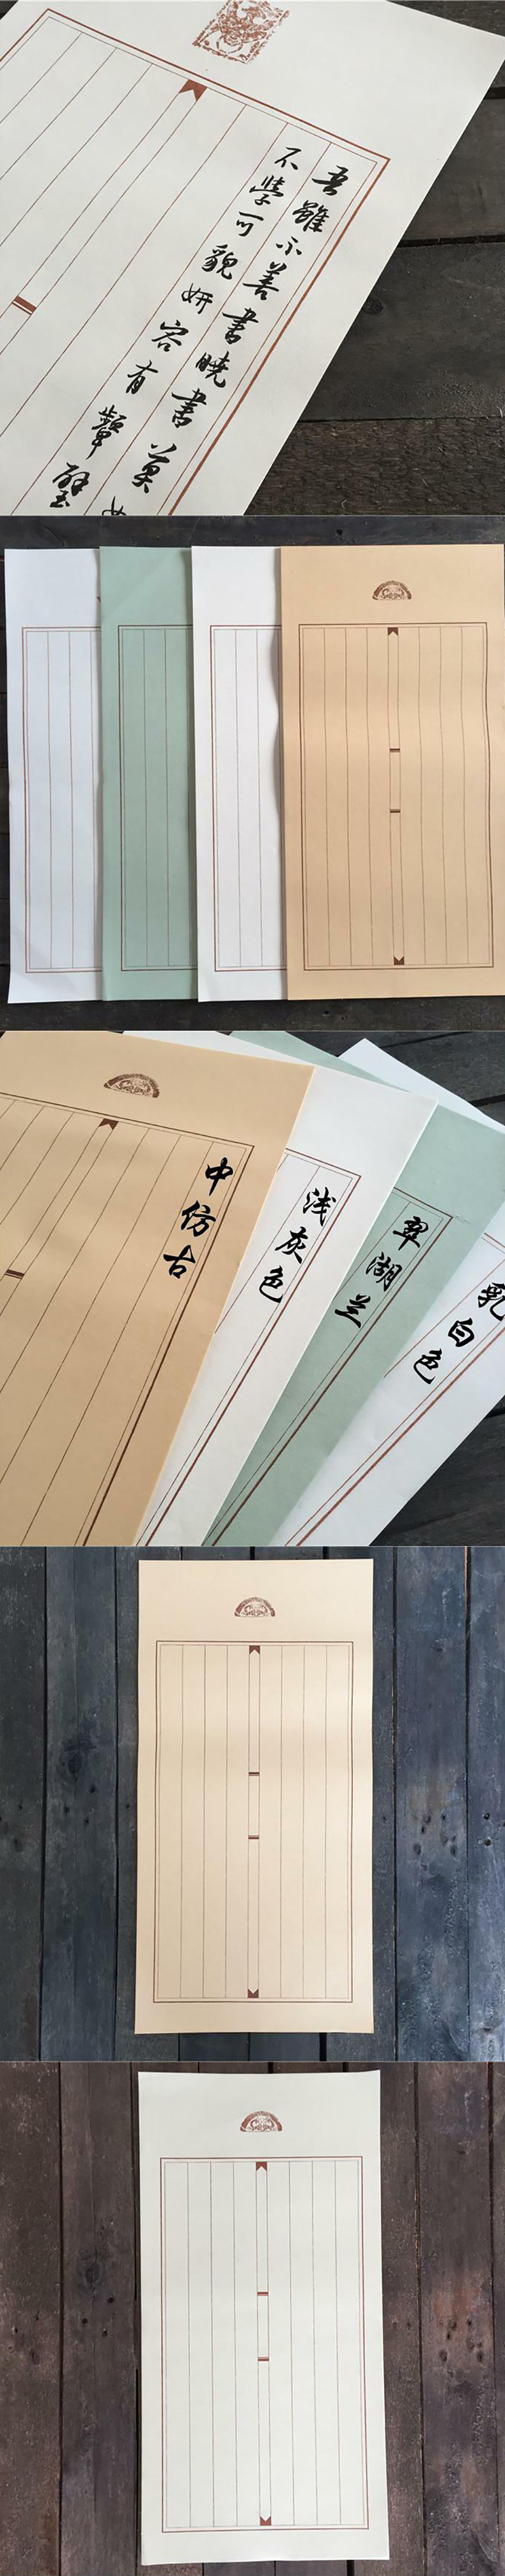 吾雖不善書曉書莫
不學可貌妍容有顰璧
中仿古
浅灰色
翠湖兰
乳白色